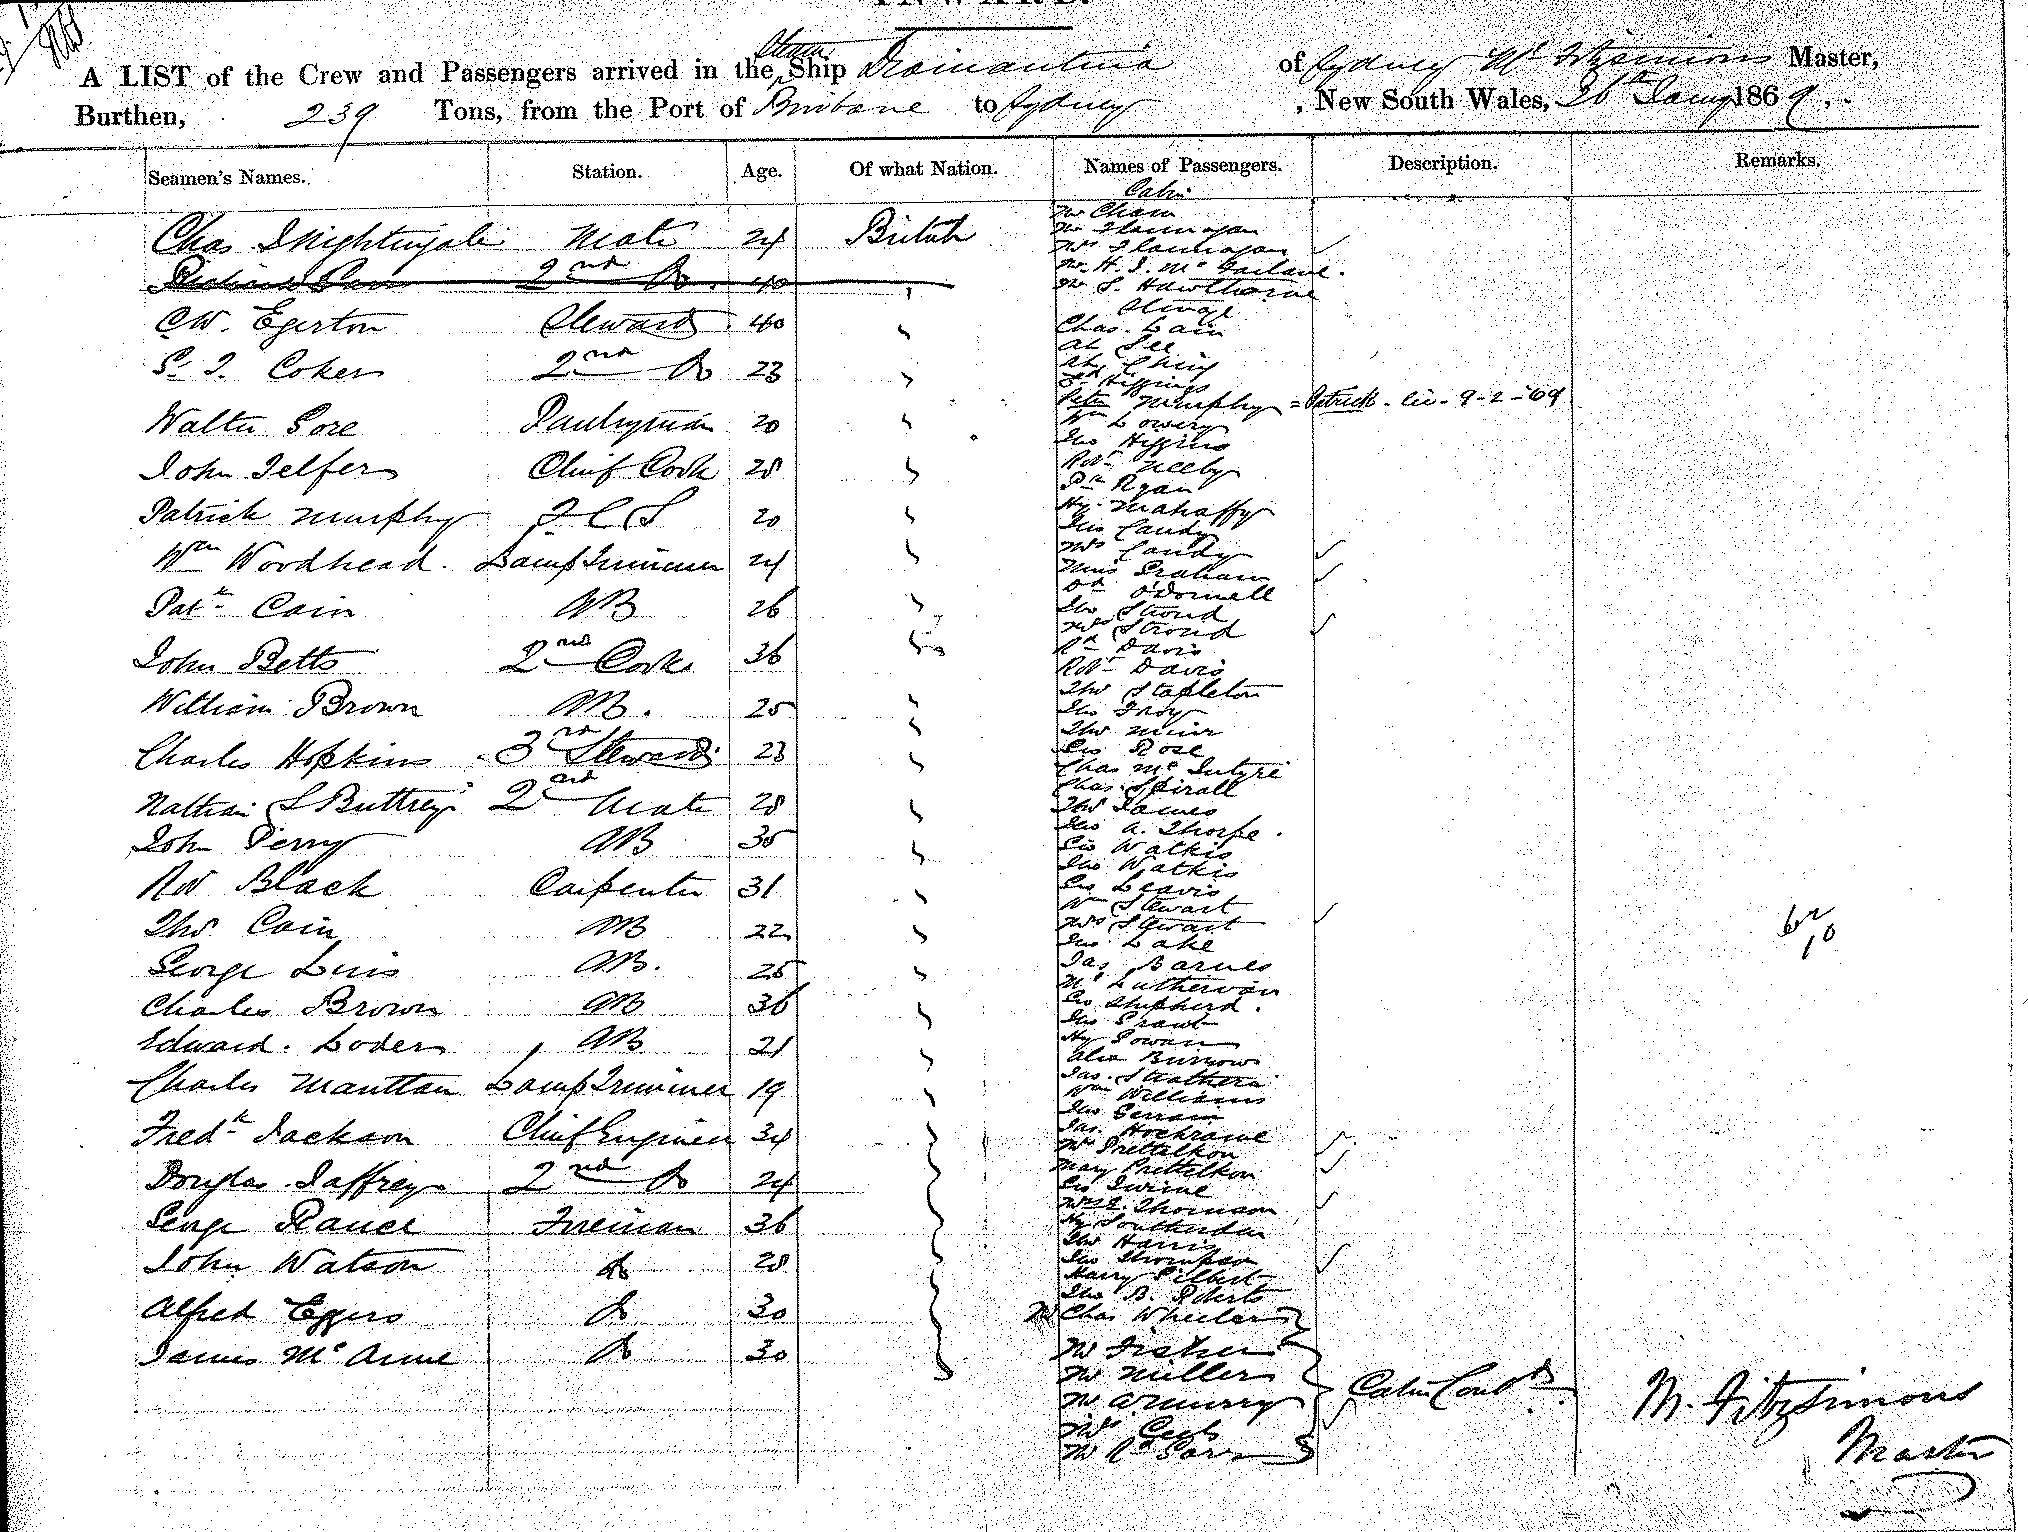 INWARD.
A LIST of the Crew and Passengers arrived in the Steam Ship Diamantina of Sydney Master,
Burthen, 239 Tons, from the Port of Brisbane to Sydney, New South Wales, 26th Jany 1869.
Seamen's Names. Station. Age. Of what Nation. Names of Passengers. Description. Remarks.
Cabin
Chas Nightingale Mate 24 British
2nd Do. 40
C W. Egerton Steward 40
Coker 2nd Do 23
Walter Gore Pantryman 20
John Telfer Chief Cook 28
Patrick Murphy F C S 20
Wm Woodhead. Lamp Trimmer 24
Patk Cain AB 26
John Betts 2nd Cook 36
William Brown AB. 25
Charles Hopkins 3rd Steward 23
Nathan S Buttrey 2nd Mate 28
John Perry AB 35
Rob Black Carpenter 31
Thos Cain AB 22
George Luis AB. 25
Charles Brown AB 36
Edward. Loder AB 21
Charles Manttan Lamp Trimmer 19
Fredk Jackson Chief Engineer 34
Douglas Jaffrey 2nd Do 24
George Rance Fireman 36
John Watson Do 28
Alfred Eggers Do 30
James Mc Do 30
Mr Cham
Mr Flannagan
Mrs Flannagan
Mr. H. J. Mc Farlane.
Mr S. Hawthorne
Steerage
Chas. Lain
Ah See
Ah Ching
Higgins
Peter Murphy = Patrick - liv - 9-2-'69
Wm Lowery
Jno Higgins
Robt Neeby
Ryan
Hy. Mahaffy
Jno Candy
Mrs Candy
Miss Graham
O'Donnell
Jno Stroud
Mrs Stroud
Rd Davis
Robt Davis
Thos Stapleton
Jno Troy
Thos Muir
Geo Rose
Chas McIntyre
Chas. Spirall
Thos James
Jno A. Thorpe.
Geo Watkis
Jno Watkis
Geo Leavis
Wm Stewart
Mrs Stewart
Jno Lake
Jas Barnes
Geo Shepherd.
Hy Powan
Alex Burrow
Jas. Strathern
Wm Williams
Jas. Hochrane
Mr Prettelkon
Mary Prettelkon
Geo Irvine
Thomson
Hy Southerden
Thos Harris
Jno Thompson
Harry Gilbert
Thos B. Roberts
Mr Chas Wheeler
Mr Fisher
Mr Miller
Mr
Mrs
Mr
Cabin Contd
62
10
M. Fitzsimons
Master